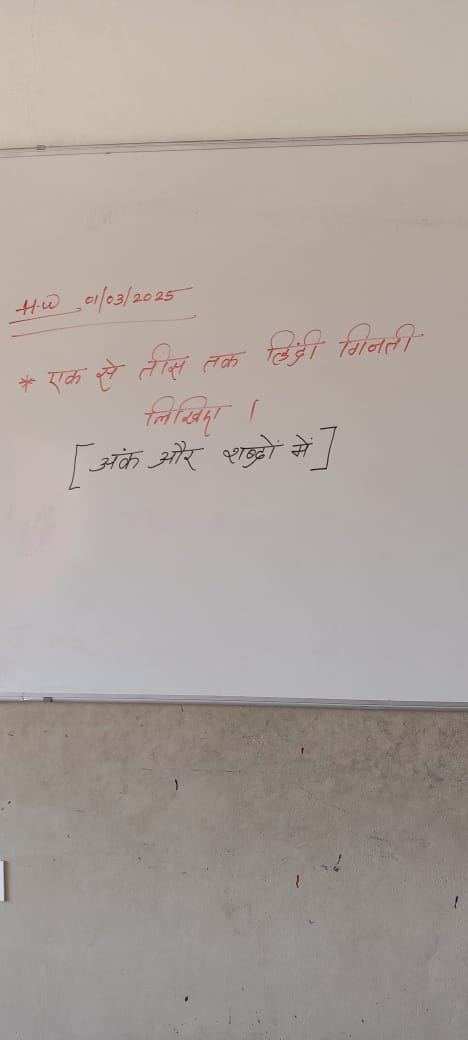 H.W 01/03/2025
* एक से तीस तक हिंदी गिनती
लिखिए ।
[अंक और शब्दों में]